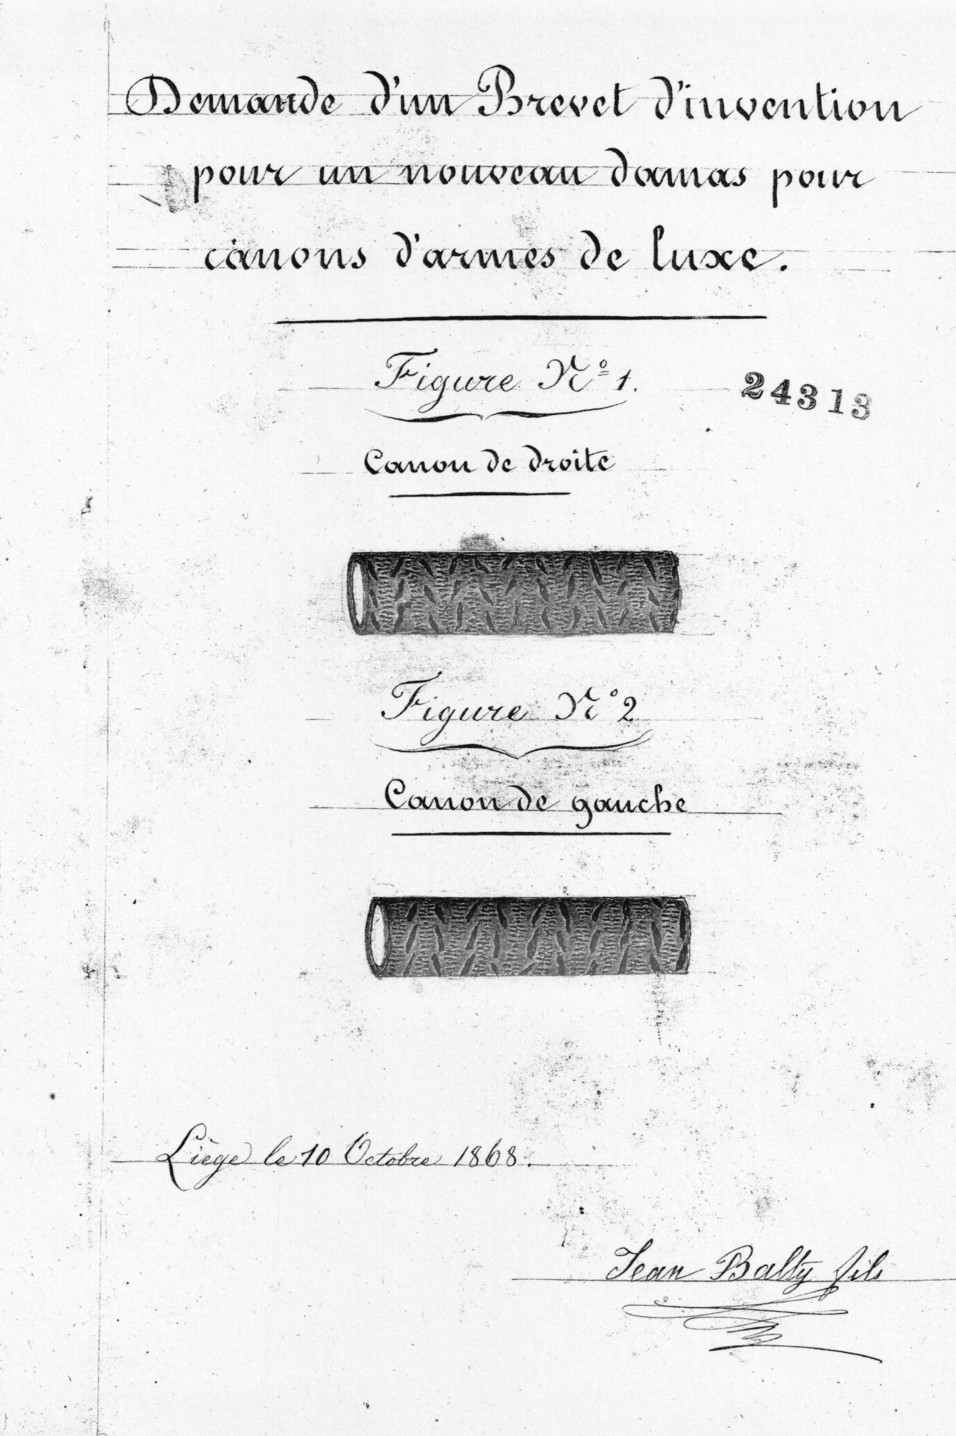 Demande d'un Brevet d'invention
pour un nouveau damas pour
canons d'armes de luxe.
Figure Nº 1.
24313
Canon de droite
Figure Nº 2
Canon de gauche
Liège le 10 Octobre 1868.
Jean Balty fils